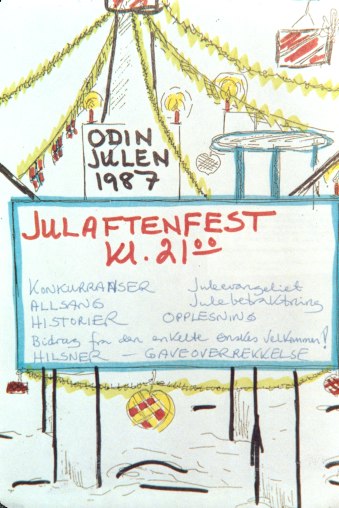 ODIN
JULEN
1987
JULAFTENFEST
Kl. 21⁰⁰
KONKURRANSER Juleevangeliet
ALLSANG Julebetraktning
HISTORIER OPPLESNING
Bidrag fra den enkelte ønskes velkommen!
HILSNER — GAVEOVERREKKELSE